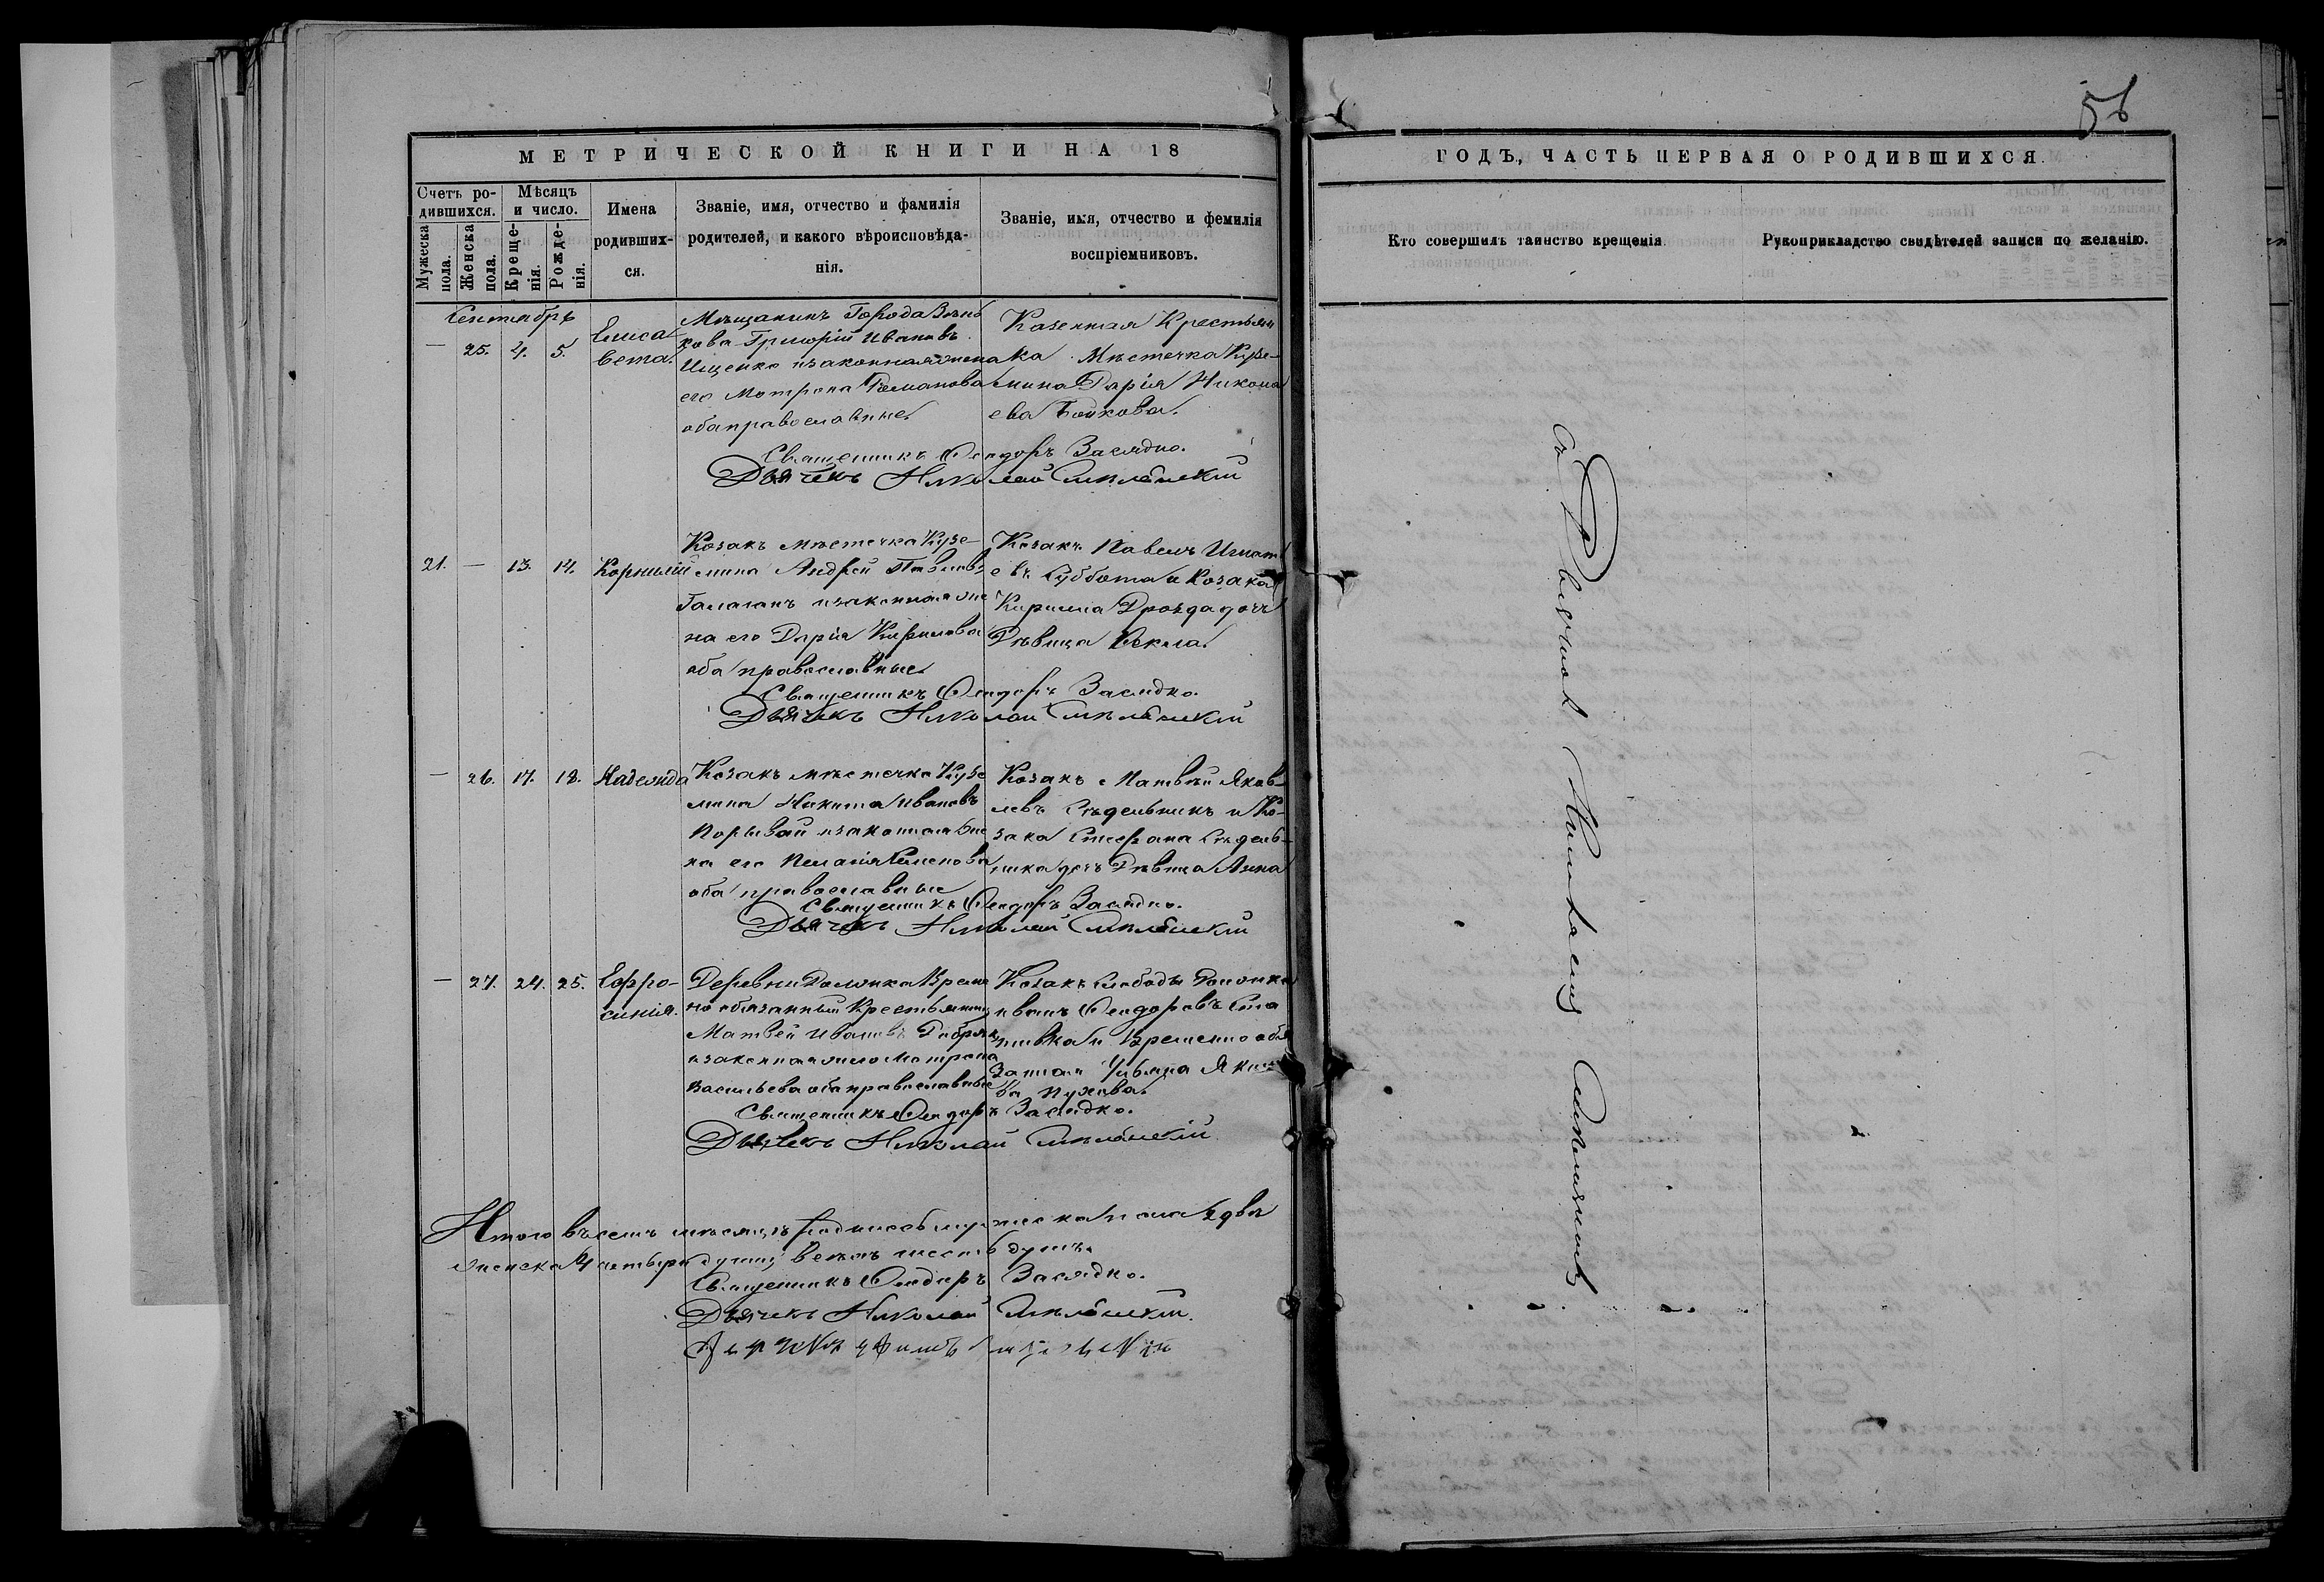 56
МЕТРИЧЕСКОЙ КНИГИ НА 18
ГОДЪ, ЧАСТЬ ПЕРВАЯ О РОДИВШИХСЯ.
Счетъ ро-
дившихся.
Мужеска
пола.
Женска
пола.
Мѣсяцъ
и число.
Креще-
нія.
Рожде-
нія.
Имена
родивших-
ся.
Званіе, имя, отчество и фамилія
родителей, и какого вѣроисповѣда-
нія.
Званіе, имя, отчество и фемилія
воспріемниковъ.
Кто совершилъ таинство крещенія.
Рукоприкладство свидѣтелей записи по желанію.
Сентябрь
— 25. 4. 5.
Елиса
вета.
Мѣщанинъ Города Зѣнь
кова Григорій Ивановъ
Ищенко и законная жена
его Мотрона Романова
оба православные
Казенная Крестьян
ка Мѣстечка Кузе-
мина Дарія Никола
ева Бойкова.
Священникъ Ѳеодоръ Засядко.
Дьячекъ Николай
21. — 13. 14. Корнилій
Козакъ мѣстечка Кузе-
мина Андрей Павловъ
Галаганъ и законная же
на его Дарія Кирилова
оба православные
Козакъ Павелъ Игнать
евъ Суббота и Козака
Кирила Дрозда дочь
Дѣвица Ѳекла.
Священникъ Ѳеодоръ Засядко.
Дьячекъ Николай
— 26. 17. 18. Надежда
Козакъ мѣстечка Кузе
мина Никита Ивановъ
Порывай и законная же
на его Пелагія Семенова
оба православные
Козакъ Матвѣй Яков-
левъ Сѣдельникъ и Ко-
зака Стефана Сѣдель-
ника дочь Дѣвица Анна
Священникъ Ѳеодоръ Засядко.
Дьячекъ Николай
— 27. 24. 25. Ефро-
синія.
Деревни Долинка Време
но обязанный Крестьянинъ
Матвей Ивановъ
и законная жена его Мотрона
Васильева оба православные
Козакъ Слободы
Иванъ Ѳеодоровъ
и Временно обя
занная Ульяна
ва Пухова.
Священникъ Ѳеодоръ Засядко.
Дьячекъ Николай
Итого въ семъ мѣсяцѣ родилось мужеска пола два
женска Четыре души, всехъ шесть душъ.
Священникъ Ѳеодоръ Засядко.
Дьячекъ Николай